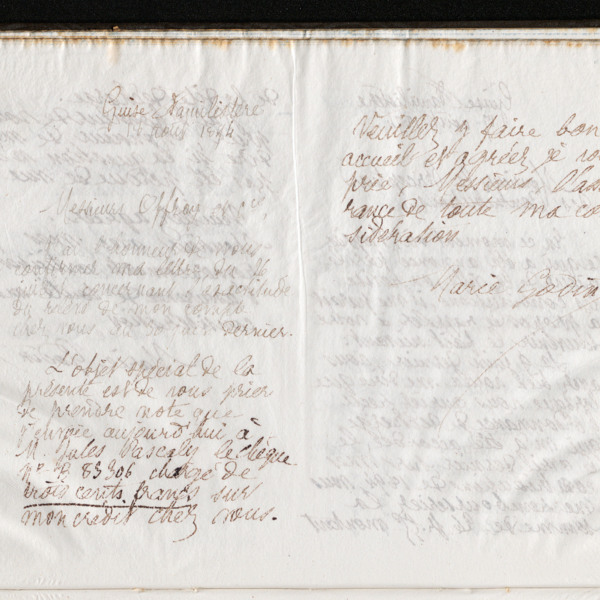 Guise Familistère
août 1894
Messieurs Offroy et Cie,
J'ai l'honneur de vous
confirmer ma lettre du 16
juillet concernant l'exactitude
du relevé de mon compte
chez vous au 30 juin dernier.
L'objet spécial de la
présente est de vous prier
de prendre note que
j'envoie aujourd'hui à
M. Jules Pascaly le chèque
n° B 83306 chargé de
trois cents francs sur
mon crédit chez vous.
Veuillez y faire bon
accueil et agréer je vous
prie, Messieurs l'assu
rance de toute ma con
sidération
Marie Godin